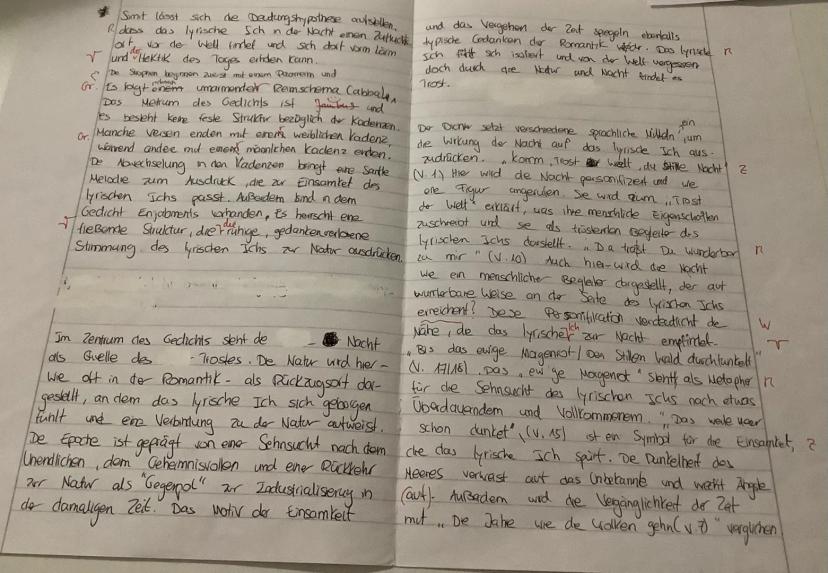 Somit lässt sich die Deutungshypothese aufstellen,
R dass das lyrische Ich in der Nacht einen Zufluchts
ort vor der Welt findet und sich dort vom Lärm
r und der Hektik des Tages erholen kann.
S Die Strophen beginnen zuerst mit einem Paarreim und
Gr. Es folgt einem umarmenden Reimschema (abba).
Das Metrum des Gedichts ist Jambus und
es besteht keine feste Struktur bezüglich der Kadenzen.
Gr. Manche Versen enden mit einem weiblichen Kadenz,
während andere mit einem männlichen Kadenz enden.
Die Abwechselung in den Kadenzen bringt eine Sanfte
Melodie zum Ausdruck, die zur Einsamkeit des
lyrischen Ichs passt. Außerdem sind in dem
Gedicht Enjabments vorhanden. Es herrscht eine
r fließende Struktur, die die ruhige, gedankenverlorene
Stimmung des lyrischen Ichs zur Natur ausdrücken.
Im Zentrum des Gedichts steht die Nacht
als Quelle des Trostes. Die Natur wird hier-
wie oft in der Romantik - als Rückzugsort dar-
gestellt, an dem das lyrische Ich sich geborgen
fühlt und eine Verbindung zu der Natur aufweist.
Die Epoche ist geprägt von einer Sehnsucht nach dem
Unendlichen, dem Geheimnisvollen und einer Rückkehr
zur Natur als "Gegenpol" zur Industrialisierung in
der damaligen Zeit. Das Motiv der Einsamkeit
und das Vergehen der Zeit spiegeln ebenfalls
typische Gedanken der Romantik wider. Das lyrische r
Ich fühlt sich isoliert und von der Welt vergessen
doch durch die Natur und Nacht findet es
Trost.
Der Dichter setzt verschiedene sprachliche Mitteln ein, um
die Wirkung der Nacht auf das lyrische Ich aus-
zudrücken. „Komm, Trost der Welt, du stille Nacht" Z
(V.1) Hier wird die Nacht personifiziert und wie
eine Figur angerufen. Sie wird zum „Trost
der Welt" erklärt, was ihre menschliche Eigenschaften
zuschreibt und sie als tröstenden Begleiter des
lyrischen Ichs darstellt. „Da trittst Du wunderbar r
zu mir" (V.10) Auch hier wird die Nacht
wie ein menschlicher Begleiter dargestellt, der auf
wunderbare Weise an der Seite des lyrischen Ichs
erscheint? Diese Personifikation verdeutlicht die W
Nähe, die das lyrische Ich zur Nacht empfindet. r
„Bis das ewige Morgenrot / Den Stillen Wald durchfunkelt"
(V. 17/18). Das „ewige Morgenrot" steht als Metapher r
für die Sehnsucht des lyrischen Ichs nach etwas
Überdauerndem und Vollkommenem. „Das weite Meer
schon dunkelt", (V.15) ist ein Symbol für die Einsamkeit, Z
die das lyrische Ich spürt. Die Dunkelheit des
Meeres verweist auf das Unbekannte und weckt Ängste
(auf). Außerdem wird die Vergänglichkeit der Zeit
mit „Die Jahre wie die Wolken gehn (V.7)" verglichen